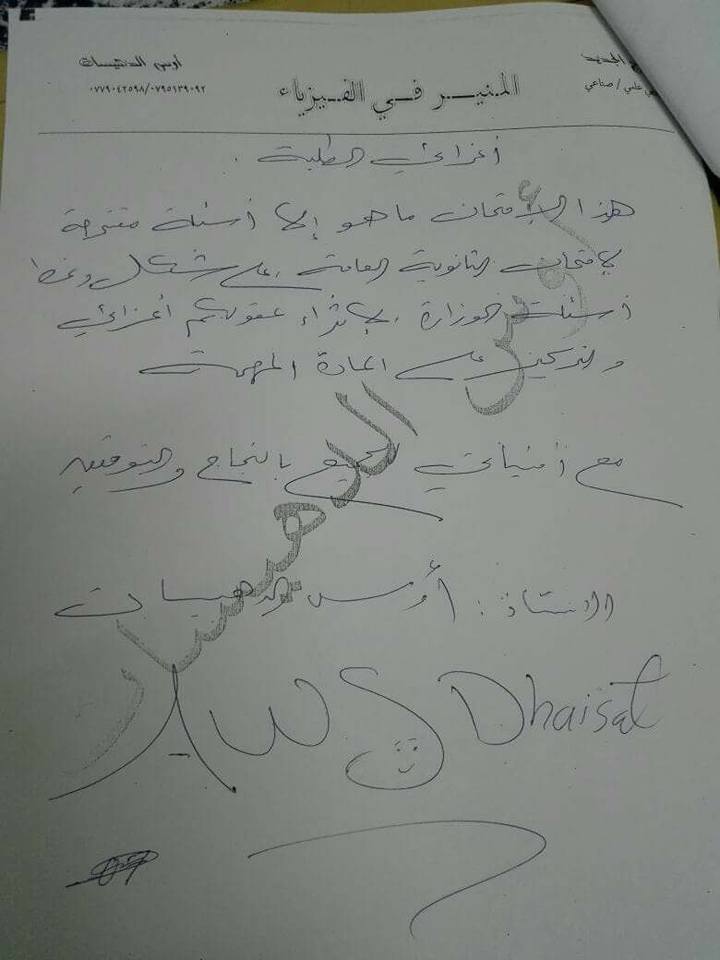 المنير في الفيزياء
علمي / صناعي
أوس الدهيسات
٠٧٧٩٠٤٢٥٩٨/٠٧٩٥١٣٩٠٩٢
أعزائي الطلبة .
هذا الامتحان ما هو إلا أسئلة مقترحة
لامتحان الثانوية العامة ، على شكل ونمط
أسئلة الوزارة ، لإثراء عقولكم أعزائي
والتركيز على المادة المهمة
مع أمنياتي للجميع بالنجاح والتوفيق
الاستاذ : أوس الدهيسات
أوس الدهيسات
Aws Dhaisat
07